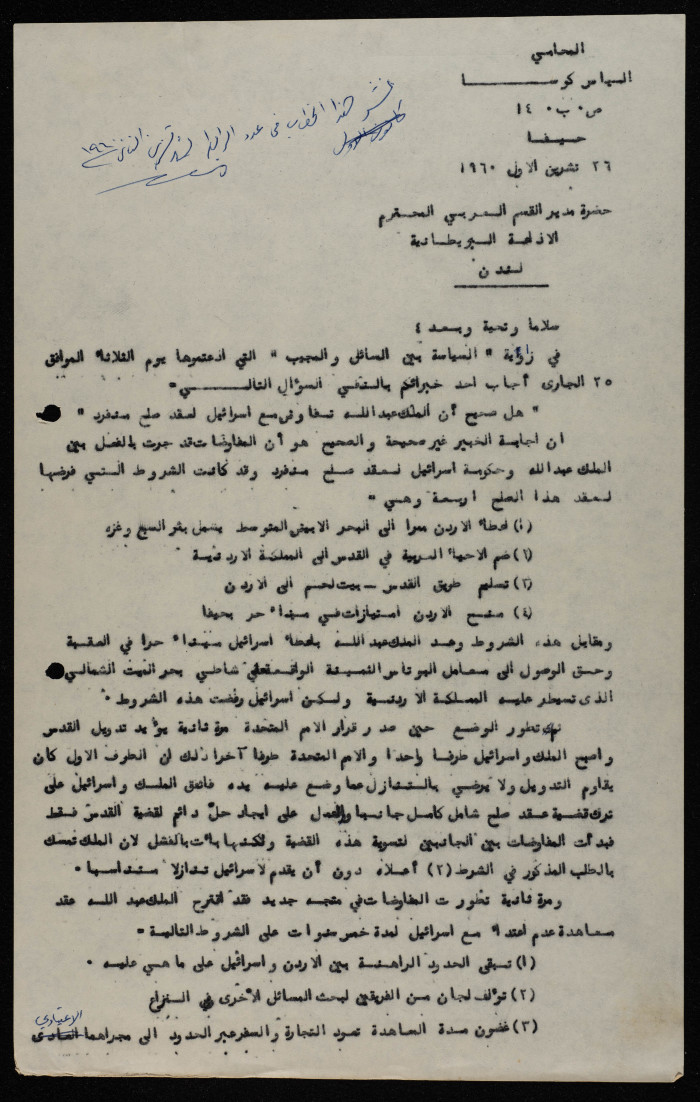 المحامي
الياس كوسا
ص٠ب٠ ١٤
حيفا
٢٦ تشرين الاول ١٩٦٠
نشر هذا الخطاب في عدد الرابطة تشرين الثاني ١٩٦٠
كانون الاول
حضرة مدير القسم العربي المحترم
الاذاعة البريطانية
لندن
سلاما وتحية وبعد ٤
في زاوية " السياسة بين السائل والمجيب " التي اذعتموها يوم الثلاثاء الموافق
٢٥ الجارى أجاب احد خبرائكم بالنفي السؤال التالي =
" هل صحيح أن الملك عبد الله تفاوض مع اسرائيل لعقد صلح منفرد "
ان اجابة الخبير غير صحيحة والصحيح هو أن المفاوضات قد جرت بالفعل بين
الملك عبد الله وحكومة اسرائيل لعقد صلح منفرد وقد كانت الشروط التي فرضها
لعقد هذا الصلح اربعة وهي "
(١) اعطاء الاردن ممرا الى البحر الابيض المتوسط يشمل بئر السبع وغزه
(٢) ضم الاحياء العربية في القدس الى المملكة الاردنية
(٣) تسليم طريق القدس – بيت لحم الى الاردن
(٤) منح الاردن امتيازات في ميناء حر بحيفا
ومقابل هذه الشروط وعد الملك عبد الله باعطاء اسرائيل ميناء حرا في العقبة
وحق الوصول الى معامل البوتاس الثمينة الواقعة على شاطي بحر الميت الشمالي
الذى تسيطر عليه المملكة الاردنية ولكن اسرائيل رفضت هذه الشروط ٠
تطور الوضع حين صدر قرار الامم المتحدة مرة ثانية يؤيد تدويل القدس
واصبح الملك واسرائيل طرفا واحدا والامم المتحدة طرفا آخرا ذلك لان الطرف الاول كان
يقاوم التدويل ولا يرضي بالتنازل عما وضع عليه يده فاتفق الملك واسرائيل على
ترك قضية عقد صلح شامل كامل جانبا والعمل على ايجاد حل دائم لقضية القدس فقط
فبدأت المفاوضات بين الجانبين لتسوية هذه القضية ولكنها باءت بالفشل لان الملك تمسك
بالطلب المذكور في الشرط (٢) أعلاه دون أن يقدم لاسرائيل تنازلا متناسبا ٠
ومرة ثانية تطورت المفاوضات في متجه جديد فقد اقترح الملك عبد الله عقد
معاهدة عدم اعتداء مع اسرائيل لمدة خمس سنوات على الشروط التالية =
(١) تبقى الحدود الراهنة بين الاردن واسرائيل على ما هي عليه ٠
(٢) تؤلف لجان من الفريقين لبحث المسائل الأخرى في النزاع
(٣) غضون مدة المعاهدة تعود التجارة والسفر عبر الحدود الى مجراهما العادى
الاعتيادى